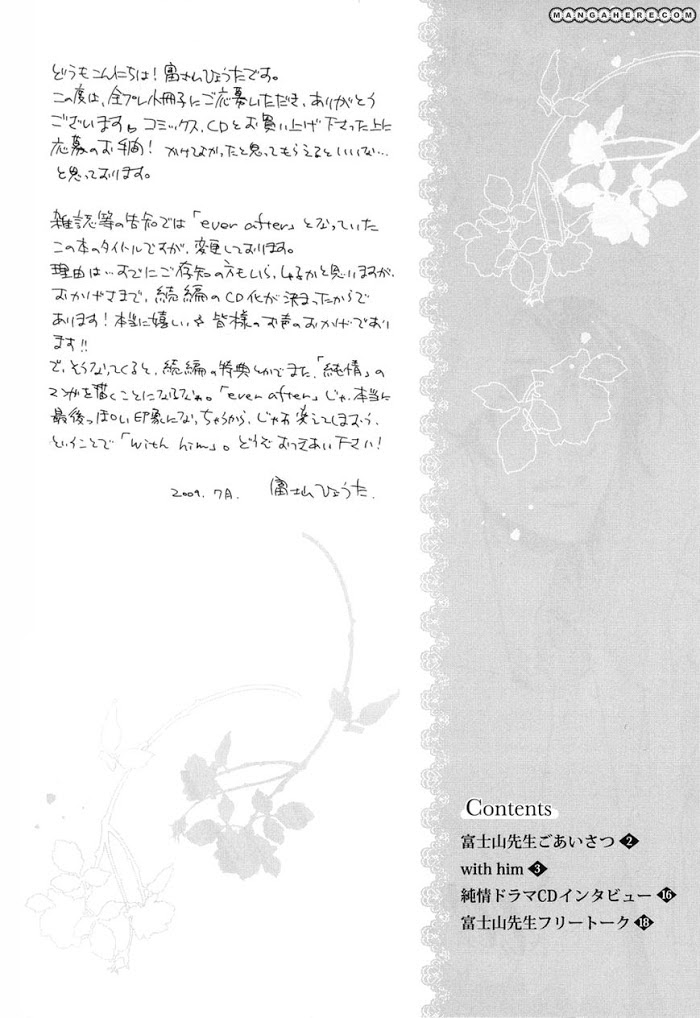 MANGAHERE.COM
どうもこんにちは！富士山ひょうたです。
この度は、全プレ小冊子にご応募いただき、ありがとう
ございます。コミックス、CDとお買い上げ下さった上に
応募のお手間！かけてよかったと思ってもらえるといいな…
と思っております。
雑誌等の告知では「ever after」となっていた
この本のタイトルですが、変更しております。
理由は…すでにご存知の方もいらっしゃるかと思いますが、
おかげさまで、続編のCD化が決まったからで
あります！本当に嬉しい☆皆様のお声のおかげであり
ます!!
で、そうなってくると、続編の特典とかでまた、「純情」の
マンガを描くことになるなぁ。「ever after」じゃ、本当に
最後っぽい印象になっちゃうから、じゃあ変えてしまおう、
ということで「with him」。どうぞおつきあい下さい！
2009.7月. 富士山ひょうた.
Contents
富士山先生ごあいさつ 2
with him 3
純情ドラマCDインタビュー 16
富士山先生フリートーク 18